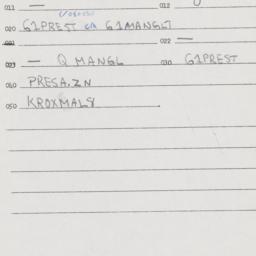 011 — 012
020 G1PREST CA G1MANGLT
021 022 —
023 — Q MANGL 030 G1PREST
040 PRESA, ZN
050 KROXMAL8